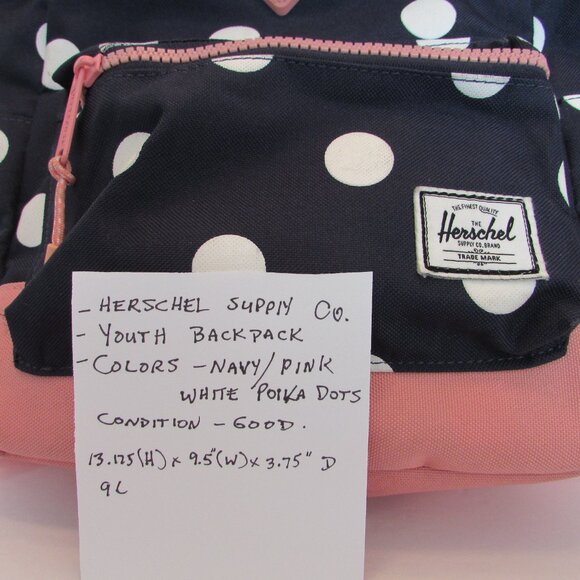 THE FINEST QUALITY
THE
Herschel
SUPPLY CO. BRAND
TRADE MARK
- HERSCHEL SUPPLY Co.
- YOUTH BACKPACK
- COLORS - NAVY/PINK
WHITE POLKA DOTS
CONDITION - GOOD.
13.125(H) x 9.5"(W) x 3.75" D
9L